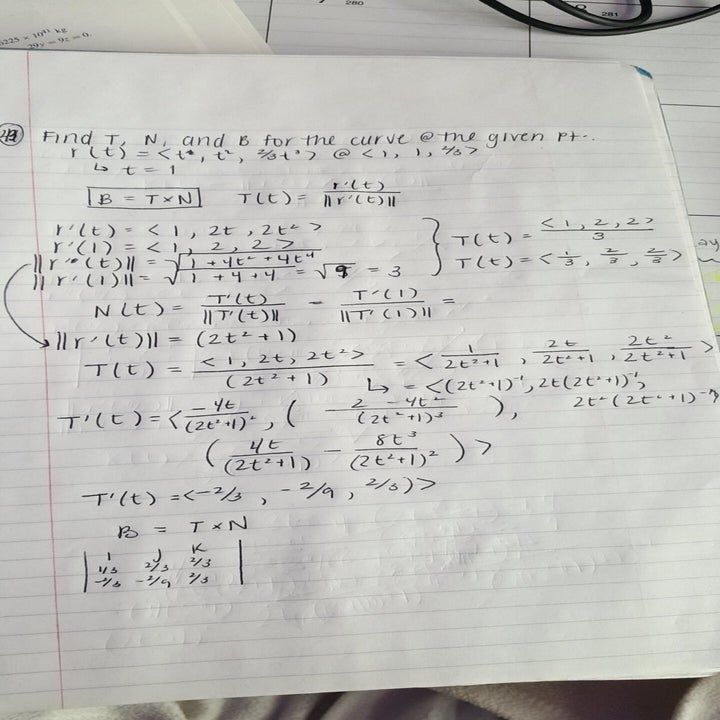 280
281
5225 × 10²¹ kg
29y − 9z = 0.
49 Find T, N, and B for the curve @ the given pt..
r(t) = <t, t², 2/3t³> @ <1, 1, 2/3>
↳ t = 1
B = T×N T(t) = r'(t) / ||r'(t)||
r'(t) = < 1, 2t, 2t² >
r'(1) = < 1, 2, 2 >
||r'(t)|| = √1 + 4t² + 4t⁴
||r'(1)|| = √1 + 4 + 4 = √9 = 3
} T(t) = <1, 2, 2> / 3
T(t) = < 1/3, 2/3, 2/3 >
N(t) = T'(t) / ||T'(t)|| = T'(1) / ||T'(1)|| =
||r'(t)|| = (2t² + 1)
T(t) = <1, 2t, 2t²> / (2t² + 1) = < 1/2t²+1, 2t/2t²+1, 2t²/2t²+1 >
↳ = <(2t²+1)⁻¹, 2t(2t²+1)⁻¹,
2t²(2t²+1)⁻¹>
T'(t) = < −4t/(2t²+1)², ( 2 − 4t²/(2t²+1)³ ),
( 4t/(2t²+1) − 8t³/(2t²+1)² ) >
T'(t) = <−2/3, −2/9, 2/3)>
B = T×N
| i j k |
| 1/3 2/3 2/3 |
| −2/3 −2/9 2/3 |